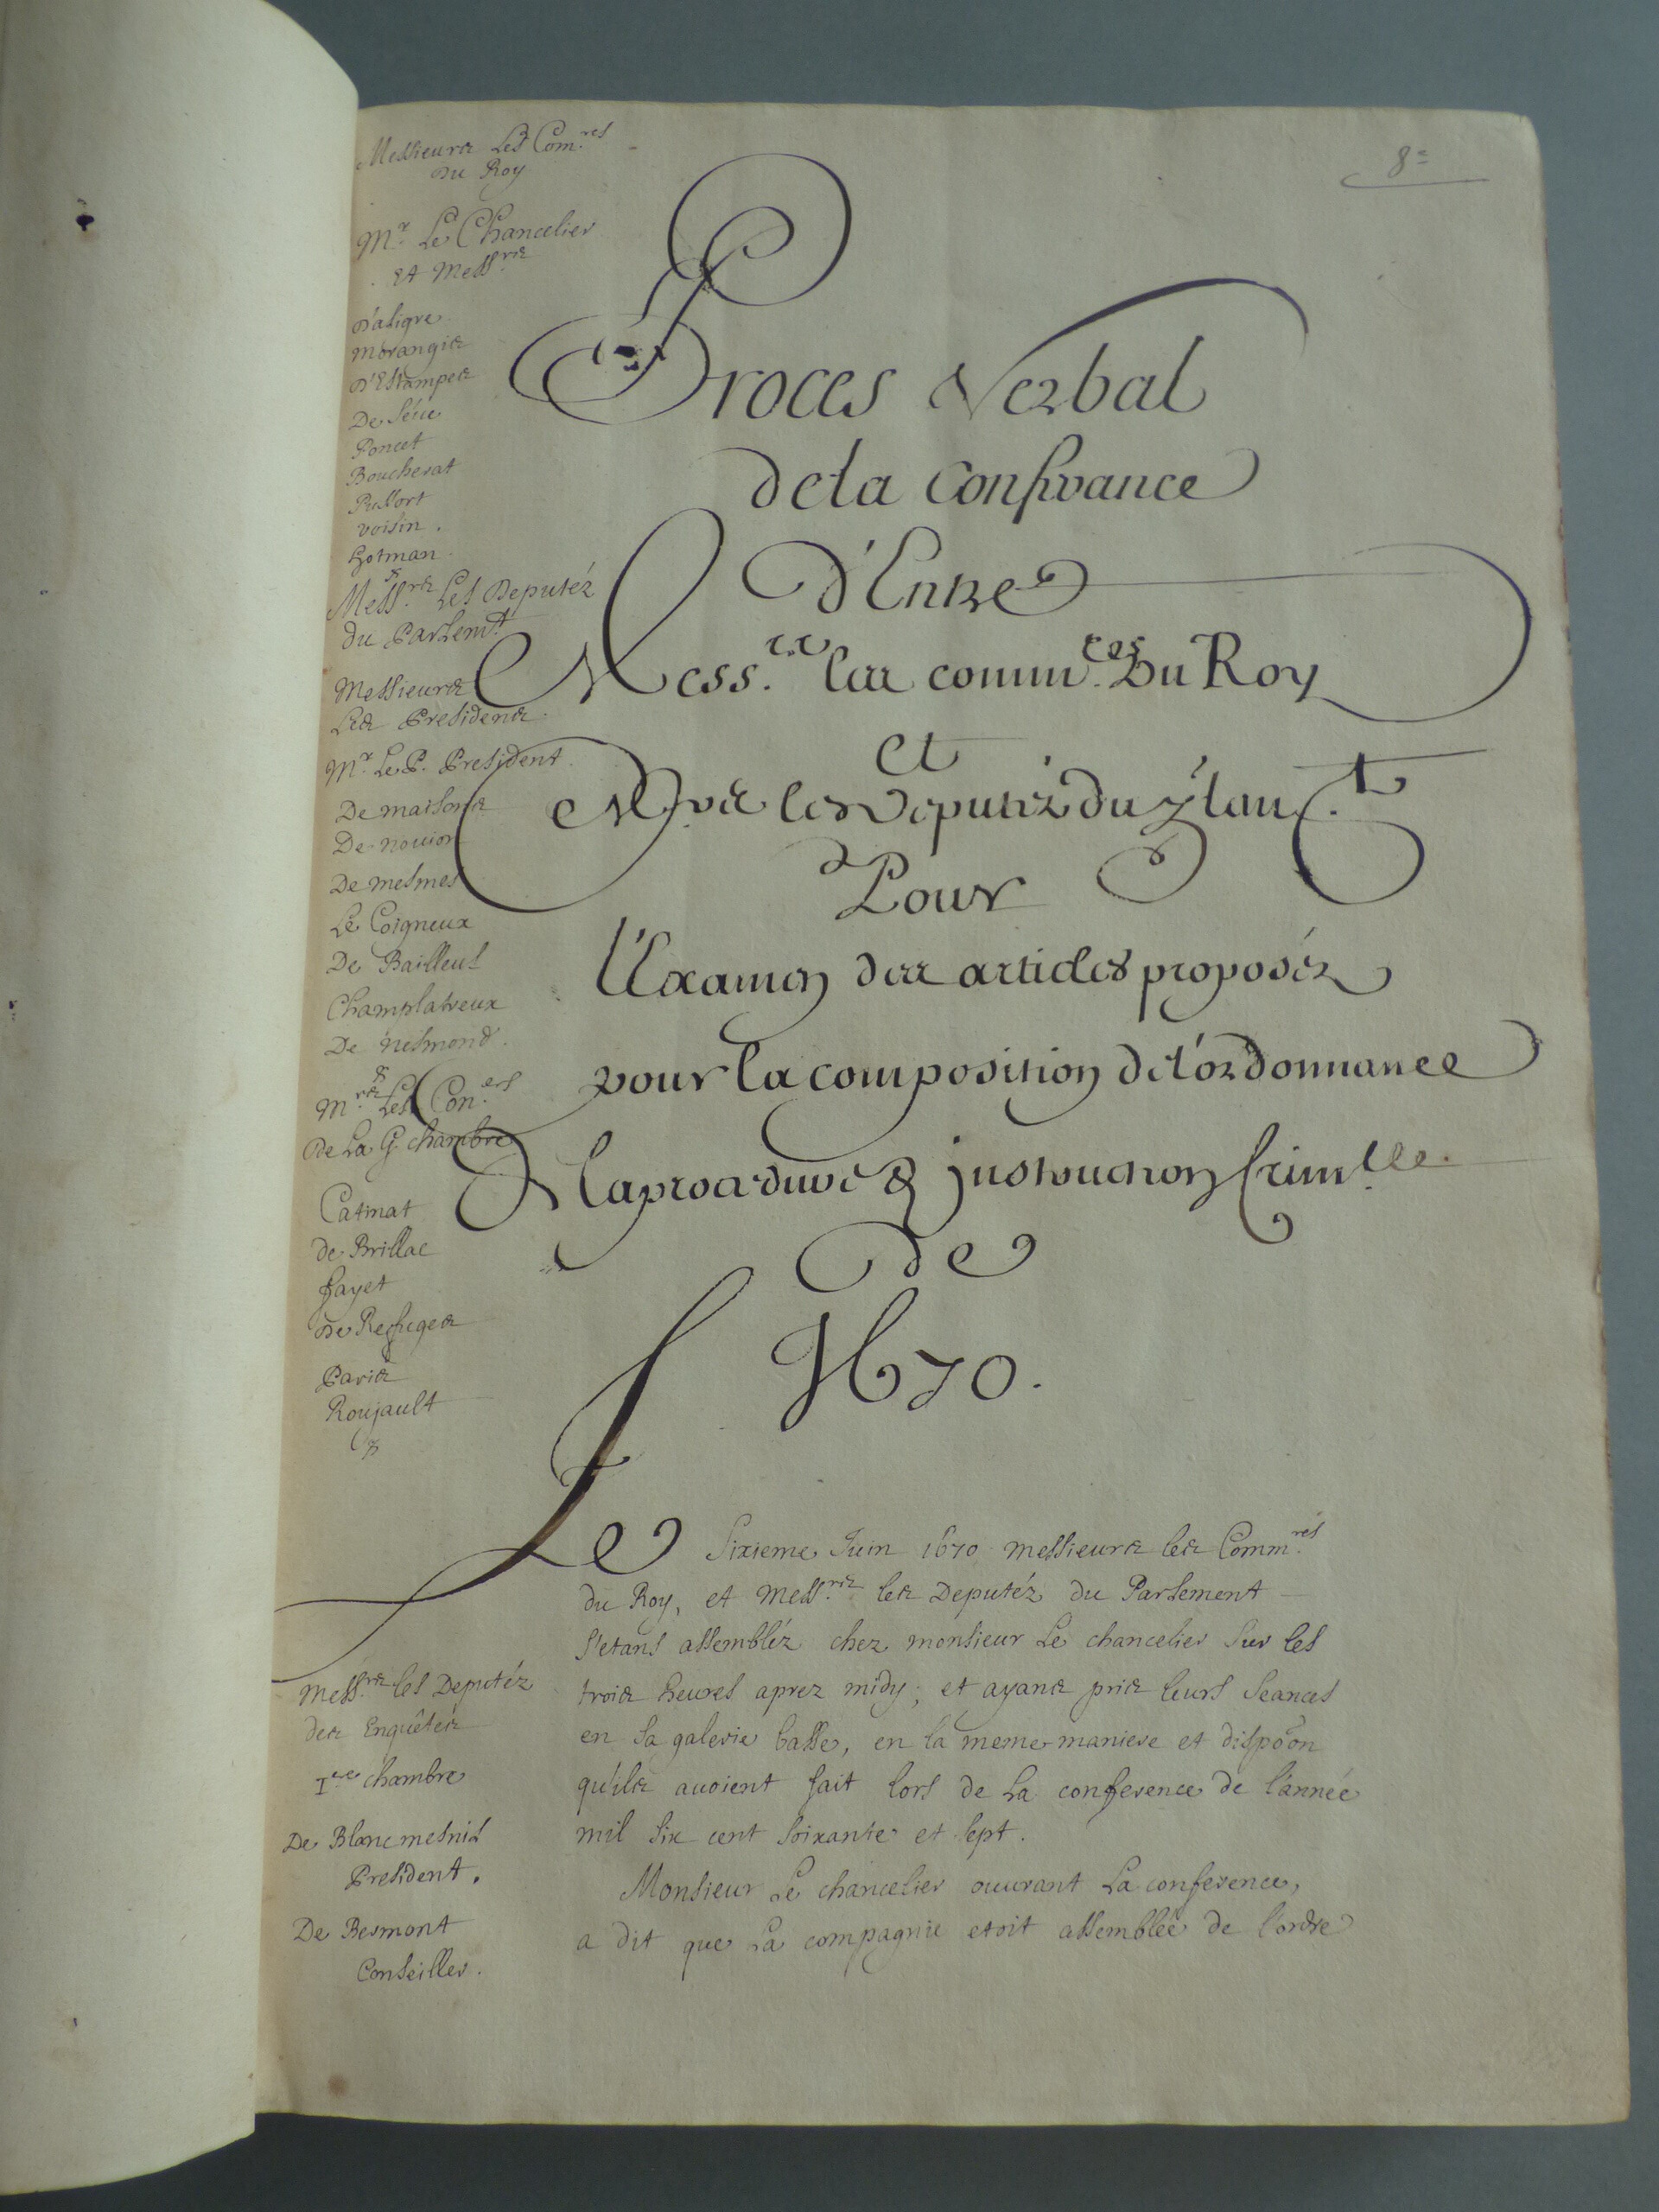 8e
Messieurs Les Com.res
du Roy
Mr. Le Chancelier
Et Mess.rs
d'aligre
morangis
d'Estampes
De Séue
Poncet
Boucherat
Pussort
voisin.
hotman.
Mess.rs Les Deputéz
du Parlem.t
Messieurs
Les Presidens.
Mr. Le P. President.
De maisons
De nouion
De mesmes
Le Coigneux
De Bailleul
Champlatreux
De nesmond.
M.rs Les Con.ers
De La G. chambre
Catinat
de Brillac
fayet
De Refuges
Paris
Roujault
Proces Verbal
de la Conferance
d'Entre
Mess.rs les comm.res Du Roy
et
M.rs les Deputéz du Parlem.t
Pour
l'Examen des articles proposéz
pour la composition de l'ordonnance
De la procedure & jnstruction Crim.lle.
de
1670.
Le Sixieme Juin 1670 messieurs les Comm.res
du Roy, et Mess.rs les Deputéz du Parlement
s'etans assembléz chez monsieur Le chancelier sur les
trois heures aprez midy; et ayans pris leurs seances
en sa galerie basse, en la meme maniere et dispoon
qu'ils auoient fait lors de La conference de l'année
mil six cent soixante et sept.
Monsieur Le chancelier ouurant La conference,
a dit que La compagnie etoit assemblée de l'ordre
Mess.rs les Deputéz
des Enquêtes
1ere chambre
De Blancmesnil
President.
De Bermont
Conseiller.